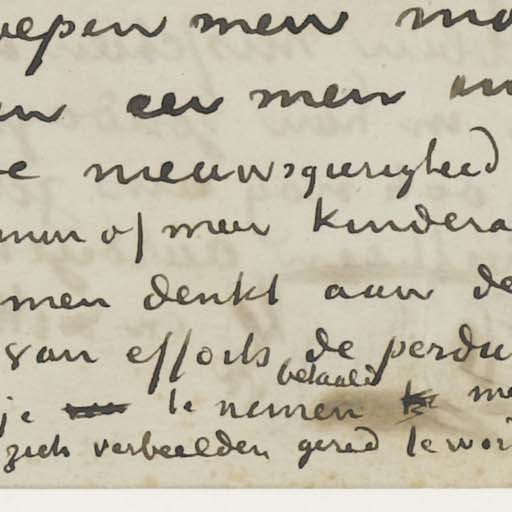 oepen men mo
en eer men
e nieuwsgierigheid
men of meer kindera
men denkt aan de
van efforts de perdu
betaald
je te nemen me
zich verbeelden gered te wor